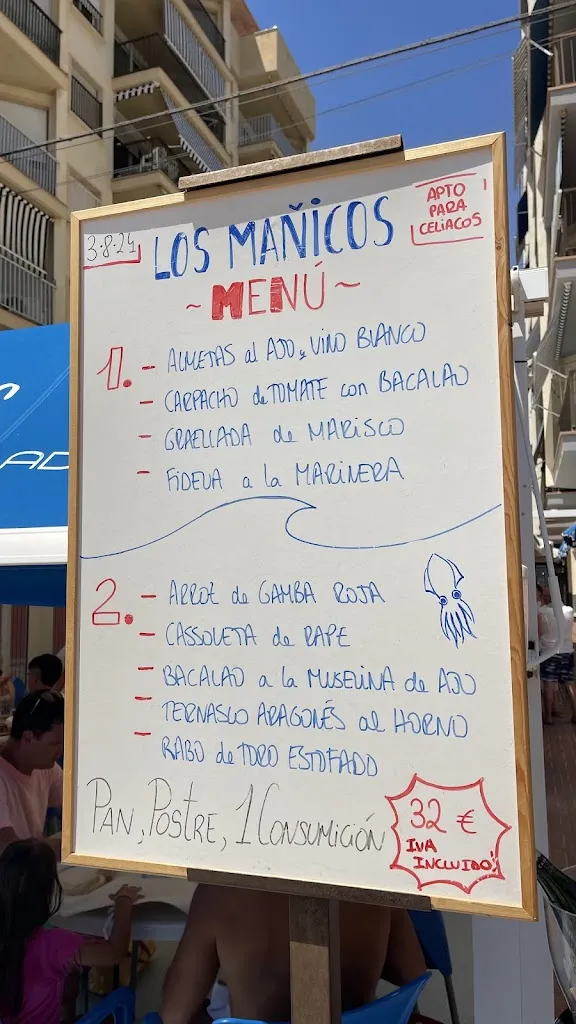 3·8·24
LOS MAÑICOS
APTO
PARA
CELiACOS
~ MENÚ ~
1. - ALMEJAS al AJO y VINO BLANCO
- CARPACHO de TOMATE con BACALAO
- GRAELLADA de MARISCO
- FiDEUA a la MARINERA
2. - ARROZ de GAMBA ROJA
- CASSOLETA de RAPE
- BACALAO a la MUSELINA de AJO
- TERNASCO ARAGONÉS al HORNO
- RABO de TORO ESTOFADO
PAN, POSTRE, 1 CONSUMICIÓN
32 €
IVA
INCLUIDO
AD